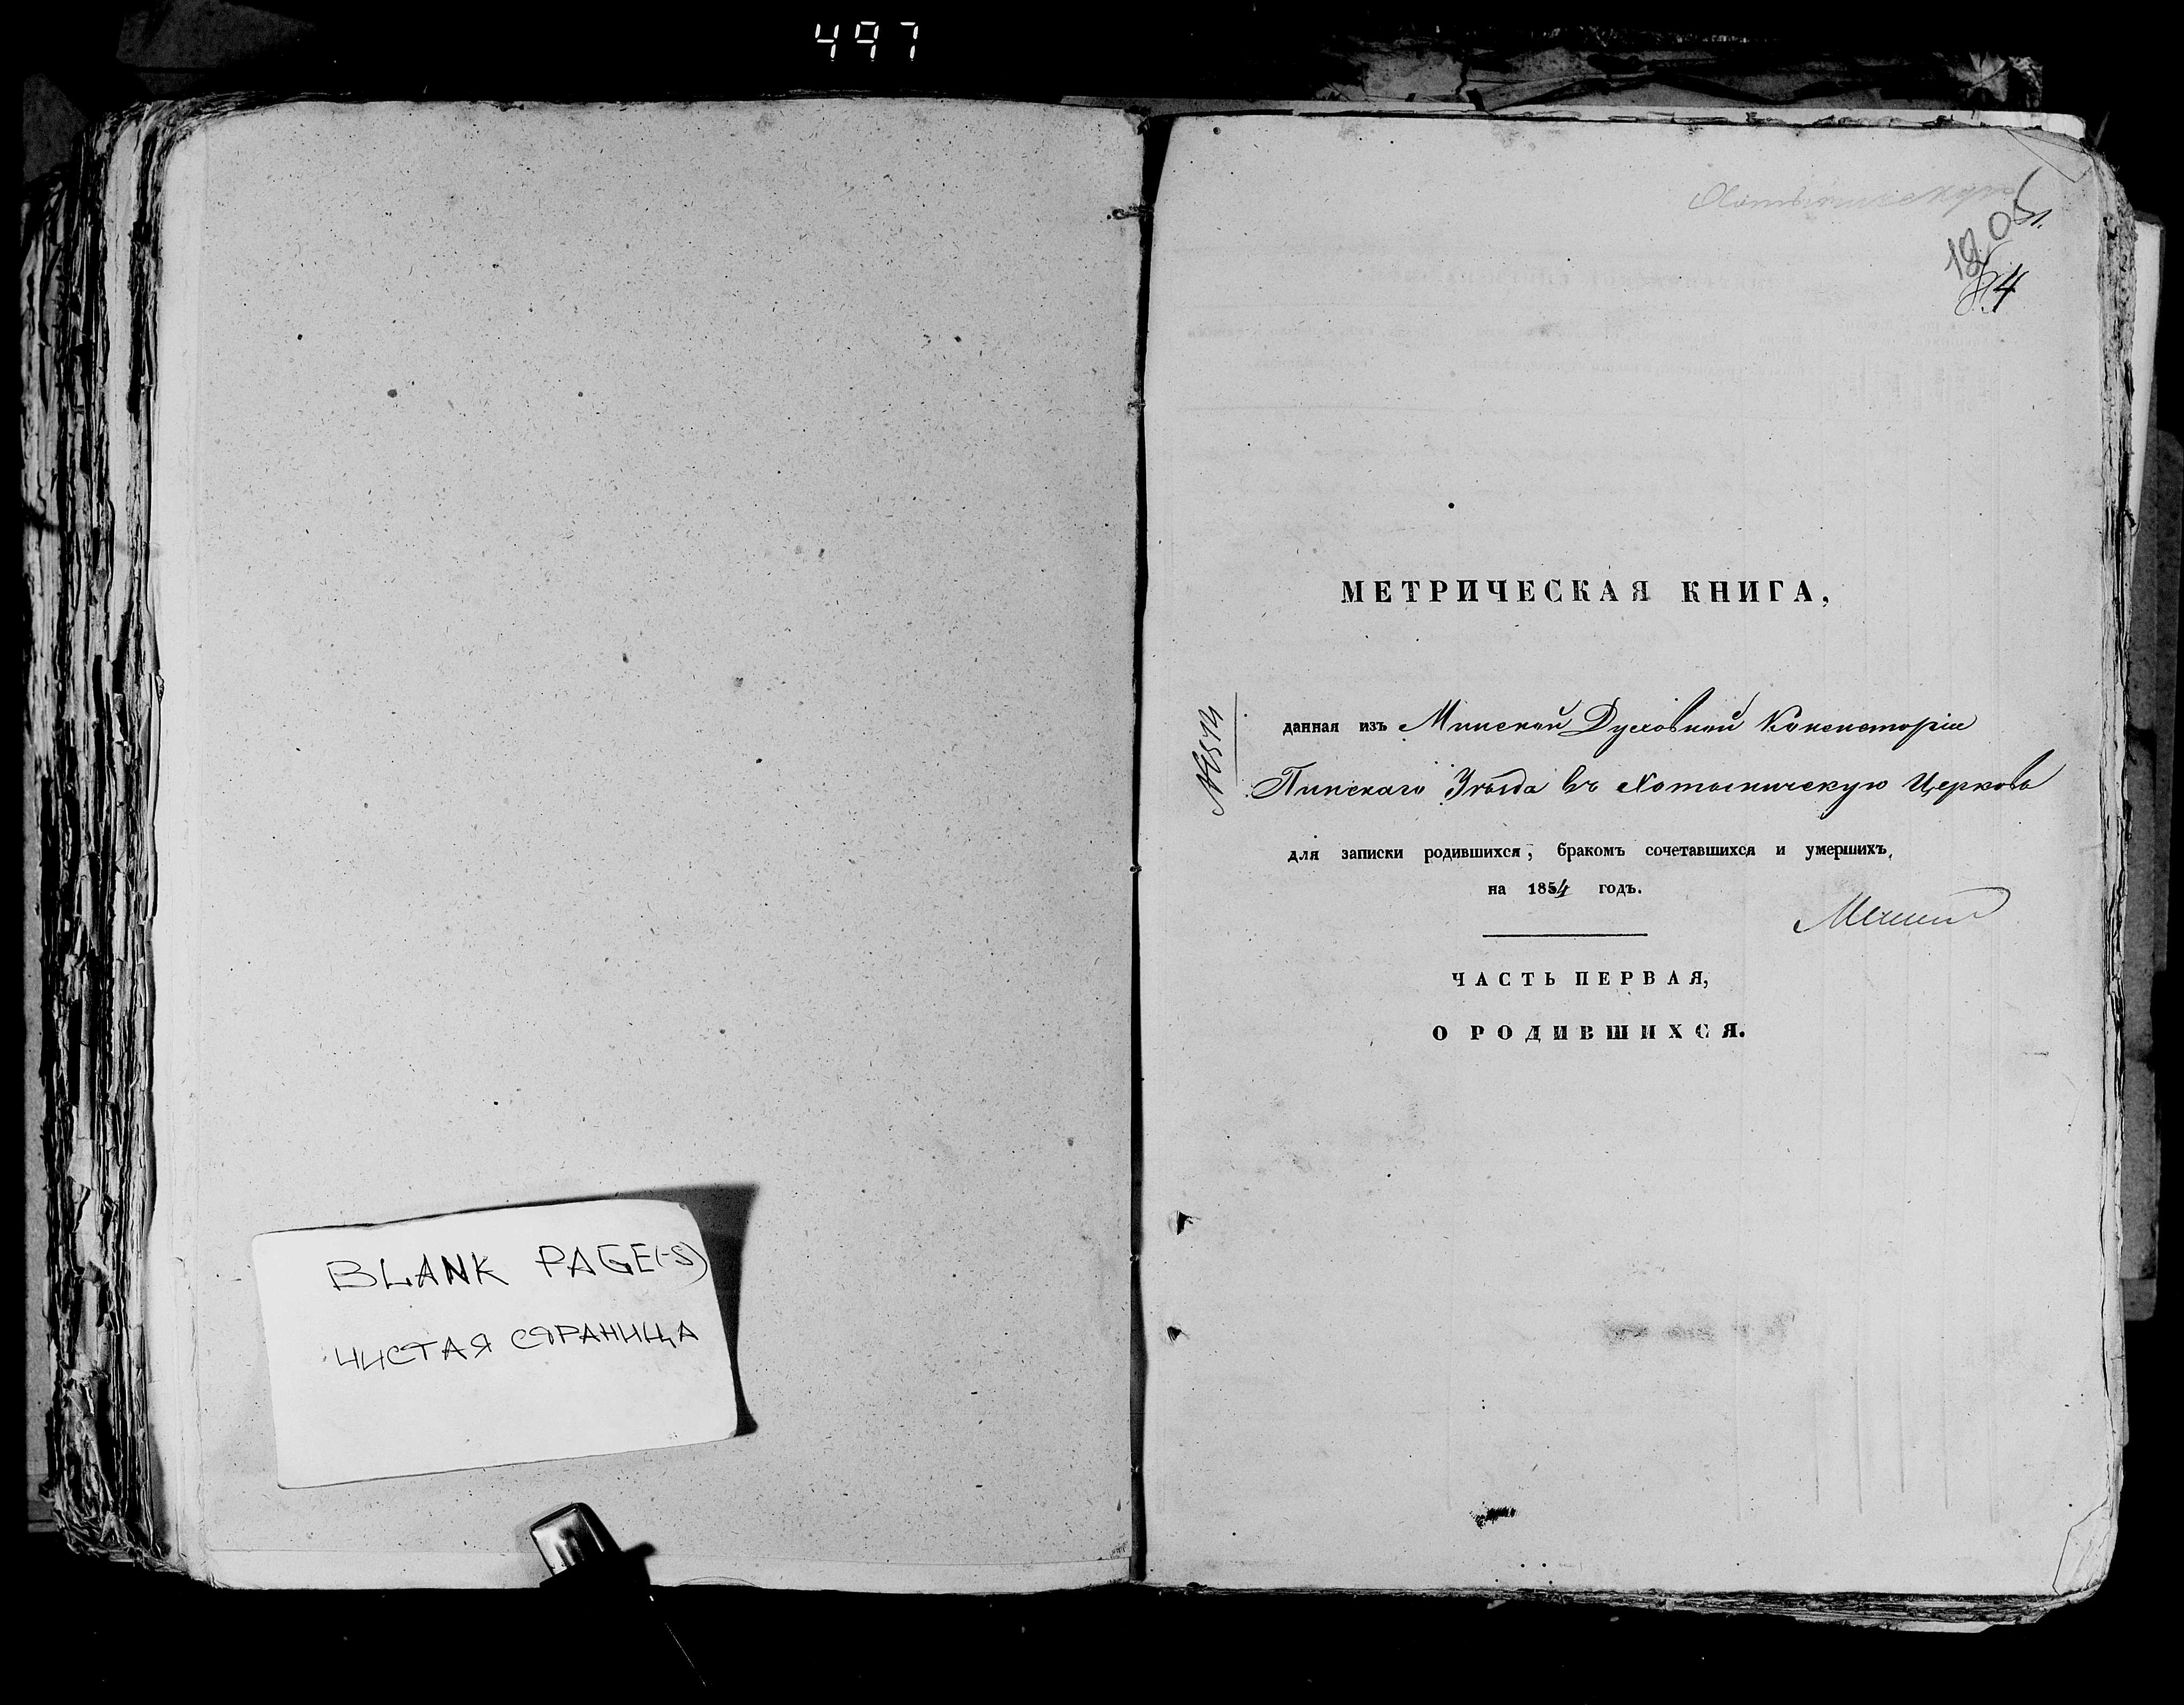 497
BLANK PAGE(-S)
ЧИСТАЯ СТРАНИЦА
Хотыничскую
МЕТРИЧЕСКАЯ КНИГА,
данная изъ Минской Духовной Консисторіи
Пинскаго Уѣзда въ Хотыничскую Церковь
для записки родившихся, бракомъ сочетавшихся и умершихъ,
на 1854 годъ.
ЧАСТЬ ПЕРВАЯ,
О РОДИВШИХСЯ.